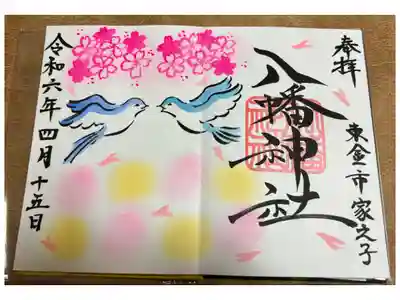 奉拝
東金市家之子
八幡神社
令和六年四月十五日